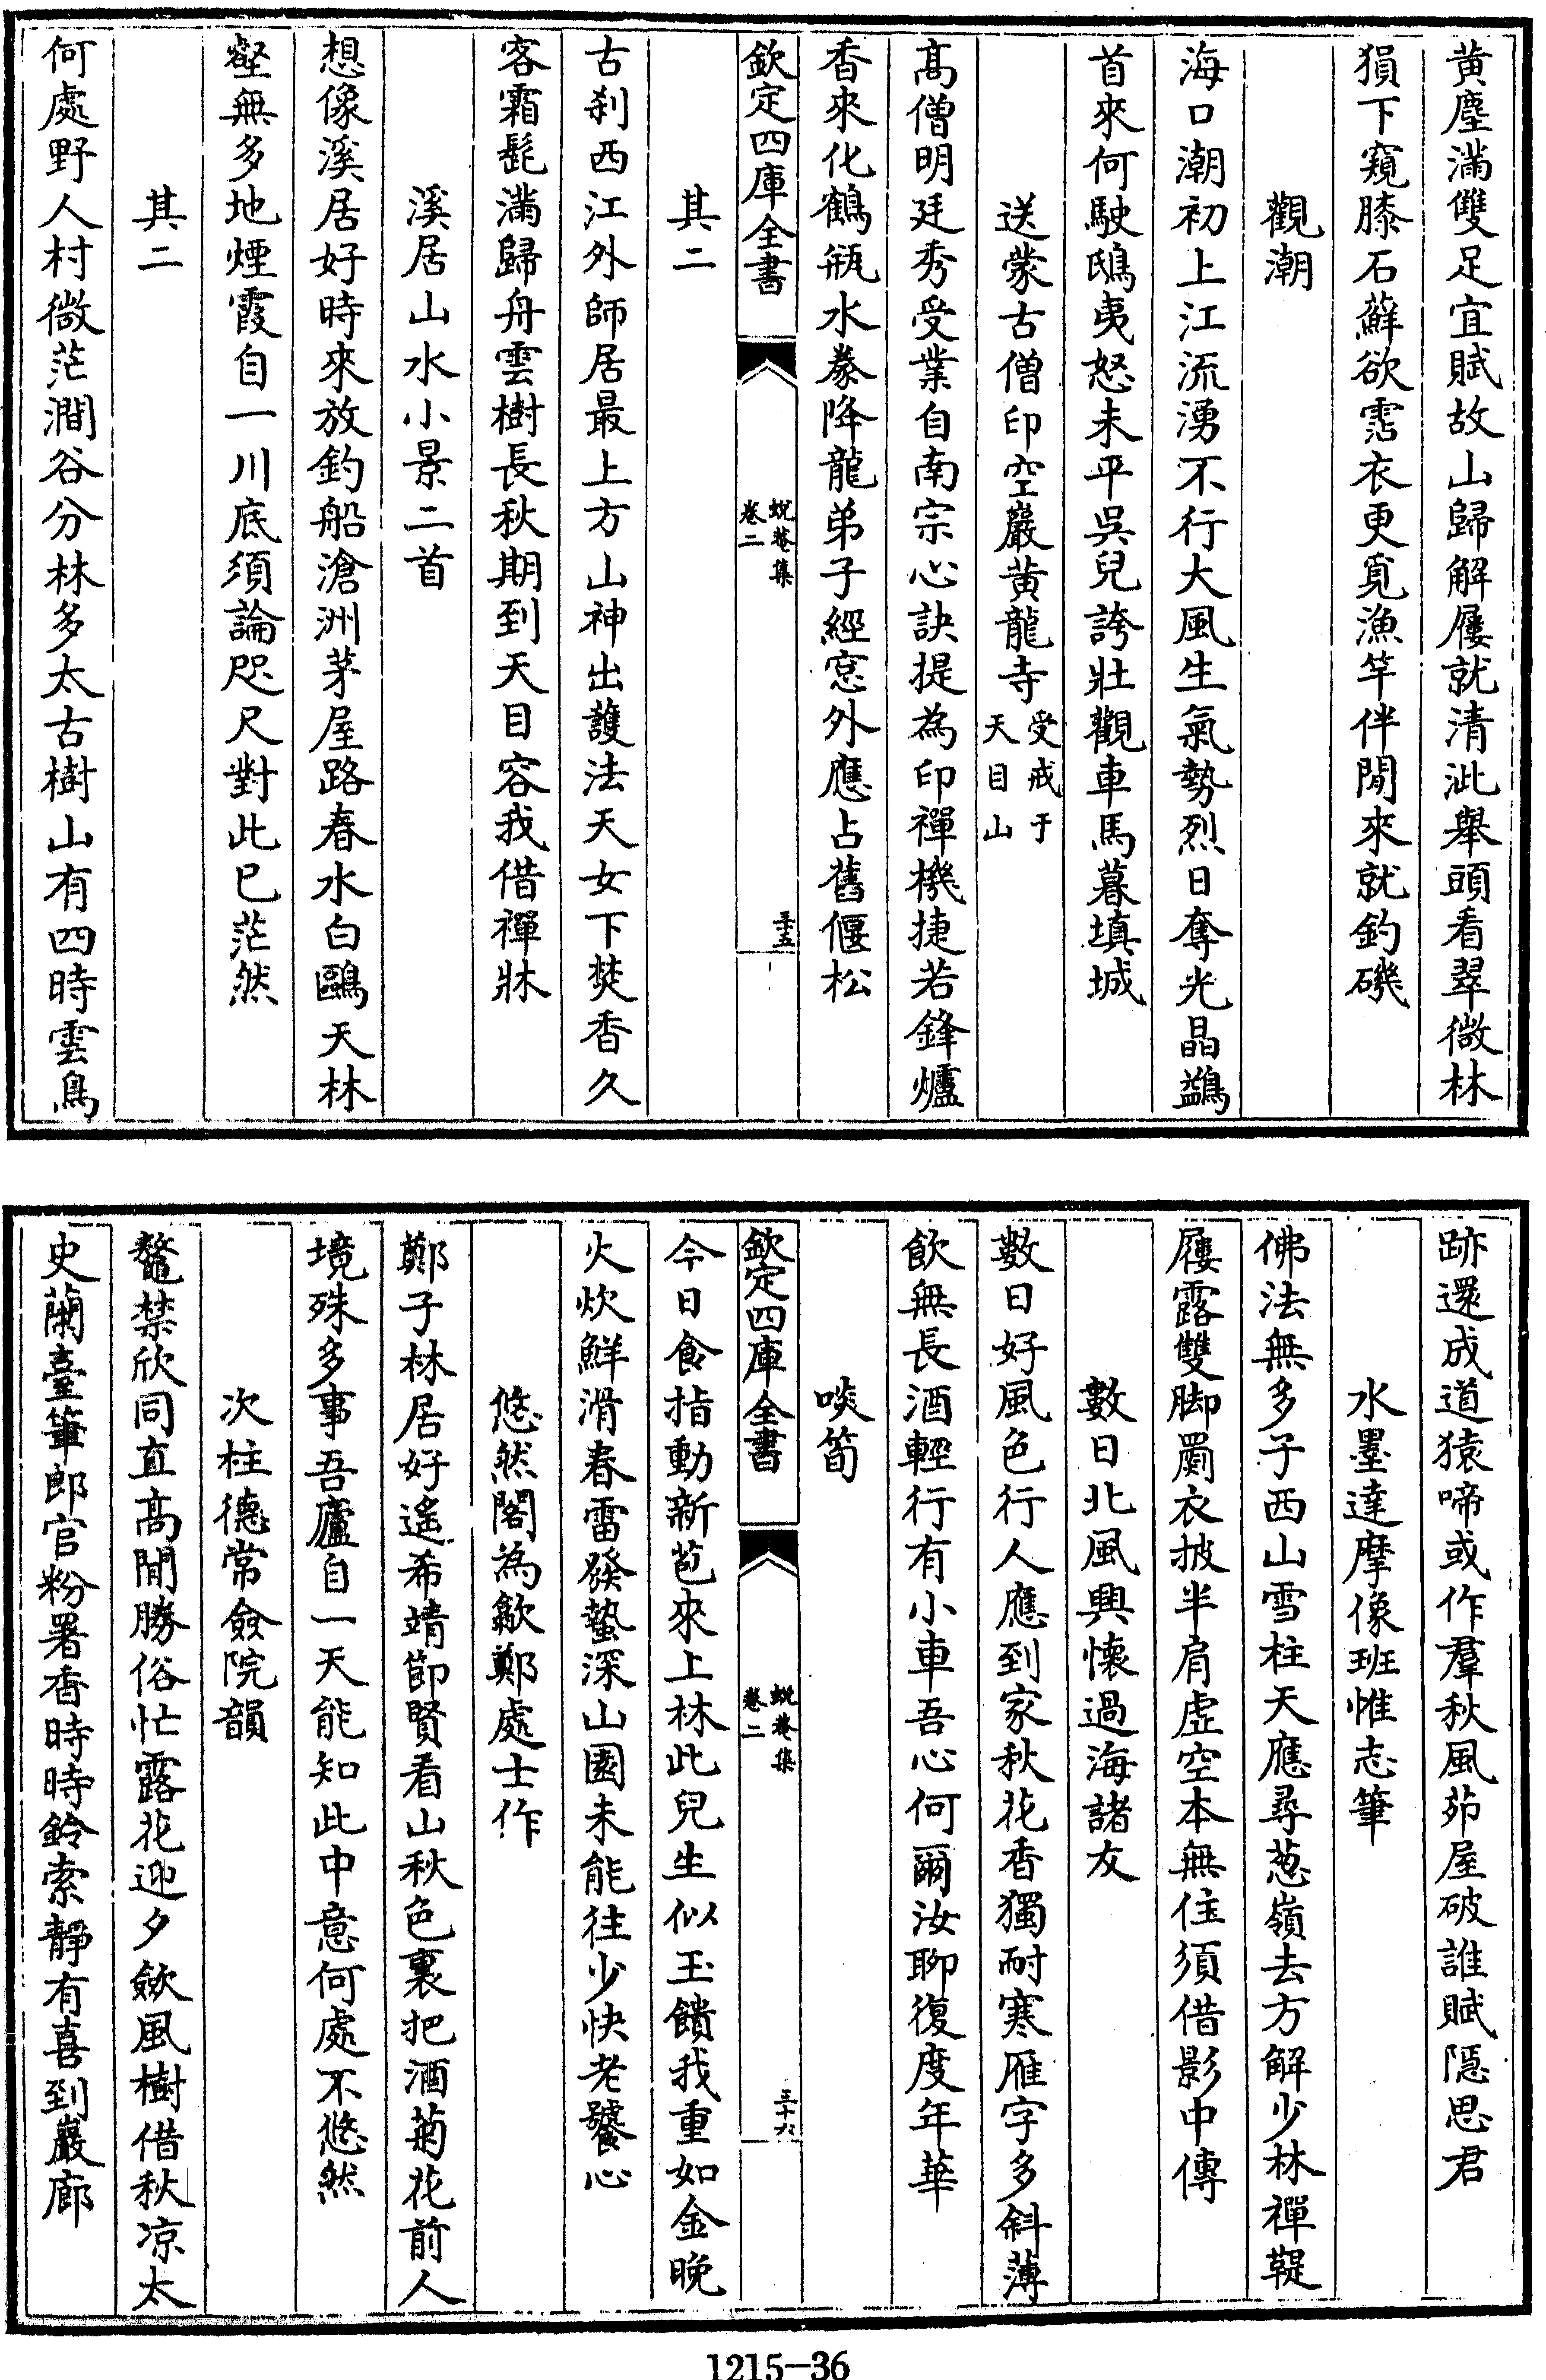 黄塵滿雙足宜賦故山歸解屨就清泚舉頭看翠微林
猿下窺膝石蘚欲霑衣更覓漁竿伴閒來就釣磯
觀潮
海口潮初上江流湧不行大風生氣勢烈日奪光晶鷁
首來何駛鴟夷怒未平吳兒誇壯觀車馬暮填城
送蒙古僧印空巖黄龍寺受戒于天目山
髙僧明廷秀受業自南宗心訣提為印禪機捷若鋒爐
香來化鶴瓶水豢降龍弟子經窓外應占舊偃松
欽定四庫全書
蛻菴集
卷二
三十五
其二
古刹西江外師居最上方山神出護法天女下焚香久
客霜髭滿歸舟雲樹長秋期到天目容我借禪牀
溪居山水小景二首
想像溪居好時來放釣船滄洲茅屋路春水白鷗天林
壑無多地煙霞自一川底須論咫尺對此已茫然
其二
何處野人村微茫澗谷分林多太古樹山有四時雲鳥
跡還成道猿啼或作羣秋風茆屋破誰賦隠思君
水墨達摩像班惟志筆
佛法無多子西山雪柱天應尋葱嶺去方解少林禪鞮
屨露雙脚罽衣披半肩虚空本無住須借影中傳
數日北風興懷過海諸友
數日好風色行人應到家秋花香獨耐寒雁字多斜薄
飲無長酒輕行有小車吾心何爾汝聊復度年華
啖筍
欽定四庫全書
蛻菴集
卷二
三十六
今日食指動新苞來上林此兒生似玉饋我重如金晚
火炊鮮滑春雷發蟄深山園未能往少快老饕心
悠然閣為歙鄭處士作
鄭子林居好遙希靖節賢看山秋色裏把酒菊花前人
境殊多事吾廬自一天能知此中意何處不悠然
次柱德常僉院韻
鼇禁欣同直髙閒勝俗忙露花迎夕歛風樹借秋凉太
史蘭臺筆郎官粉署香時時鈴索靜有喜到巖廊
1215—36